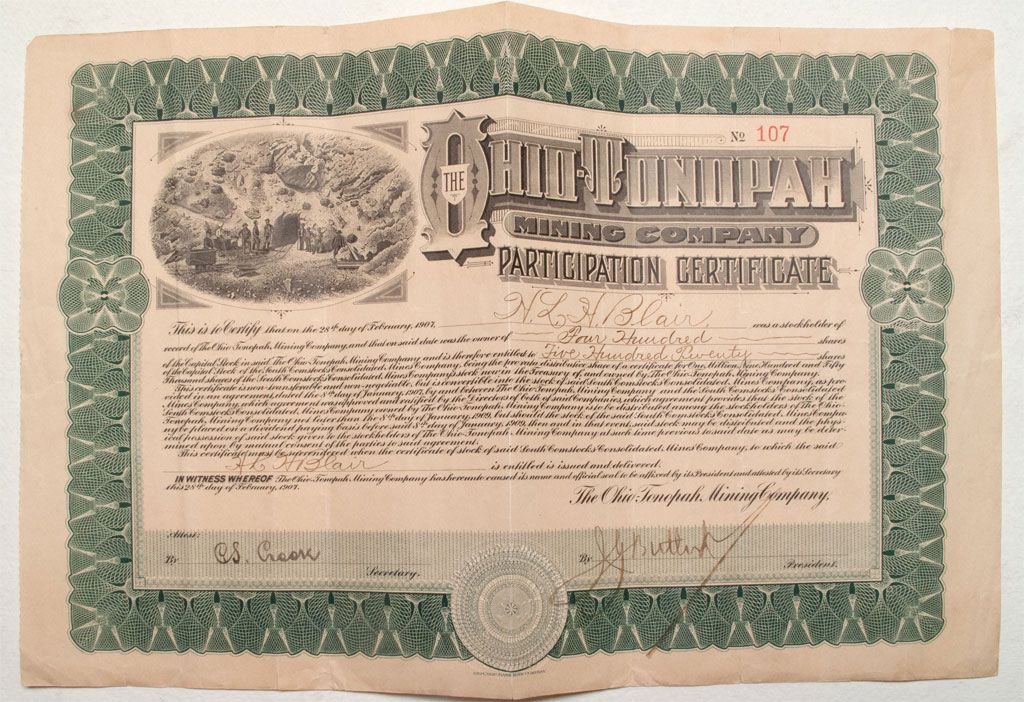 No 107
THE OHIO-TONOPAH
MINING COMPANY
PARTICIPATION CERTIFICATE
This is to Certify that on the 28th day of February, 1907, H L H Blair, was a stockholder of
record of The Ohio Tonopah Mining Company, and that on said date was the owner of Four Hundred shares
of the Capital Stock in said The Ohio Tonopah Mining Company and is therefore entitled to Five Hundred Twenty shares
of the Capital Stock of the South Comstocks Consolidated, Mines Company, being the pro rata distributive share of a certificate for One Million, Nine Hundred and Fifty
Thousand shares of the South Comstocks Consolidated, Mines Company's stock now in the Treasury of, and owned by The Ohio-Tonopah, Mining Company.
This certificate is non assessable and non negotiable, but is convertible into the stock of said South Comstocks Consolidated, Mines Company, as pro-
vided in an agreement, dated the 8th day of January, 1907, by and between The Ohio-Tonopah, Mining Company and the South Comstocks Consolidated,
Mines Company, which agreement was approved and ratified by the Directors of both of said Companies, which agreement provides that the stock of the
South Comstocks Consolidated, Mines Company owned by The Ohio-Tonopah, Mining Company is to be distributed among the stockholders of The Ohio
Tonopah, Mining Company not before the 8th day of January, 1909, but should the stock of the said South Comstocks Consolidated, Mines Compa-
ny be placed on a dividend paying basis before said 8th day of January, 1909, then and in that event, said stock may be distributed and the phys-
ical possession of said stock given to the stockholders of The Ohio Tonopah, Mining Company at such time previous to said date as may be deter-
mined upon by mutual consent of the parties to said agreement.
This certificate must be surrendered when the certificate of stock of said South Comstocks Consolidated, Mines Company, to which the said
H L H Blair is entitled is issued and delivered.
IN WITNESS WHEREOF The Ohio-Tonopah, Mining Company has hereunto caused its name and official seal to be affixed by its President and attested by its Secretary
this 28th day of February, 1907.
The Ohio-Tonopah, Mining Company,
Attest:
By
Secretary.
By
President.